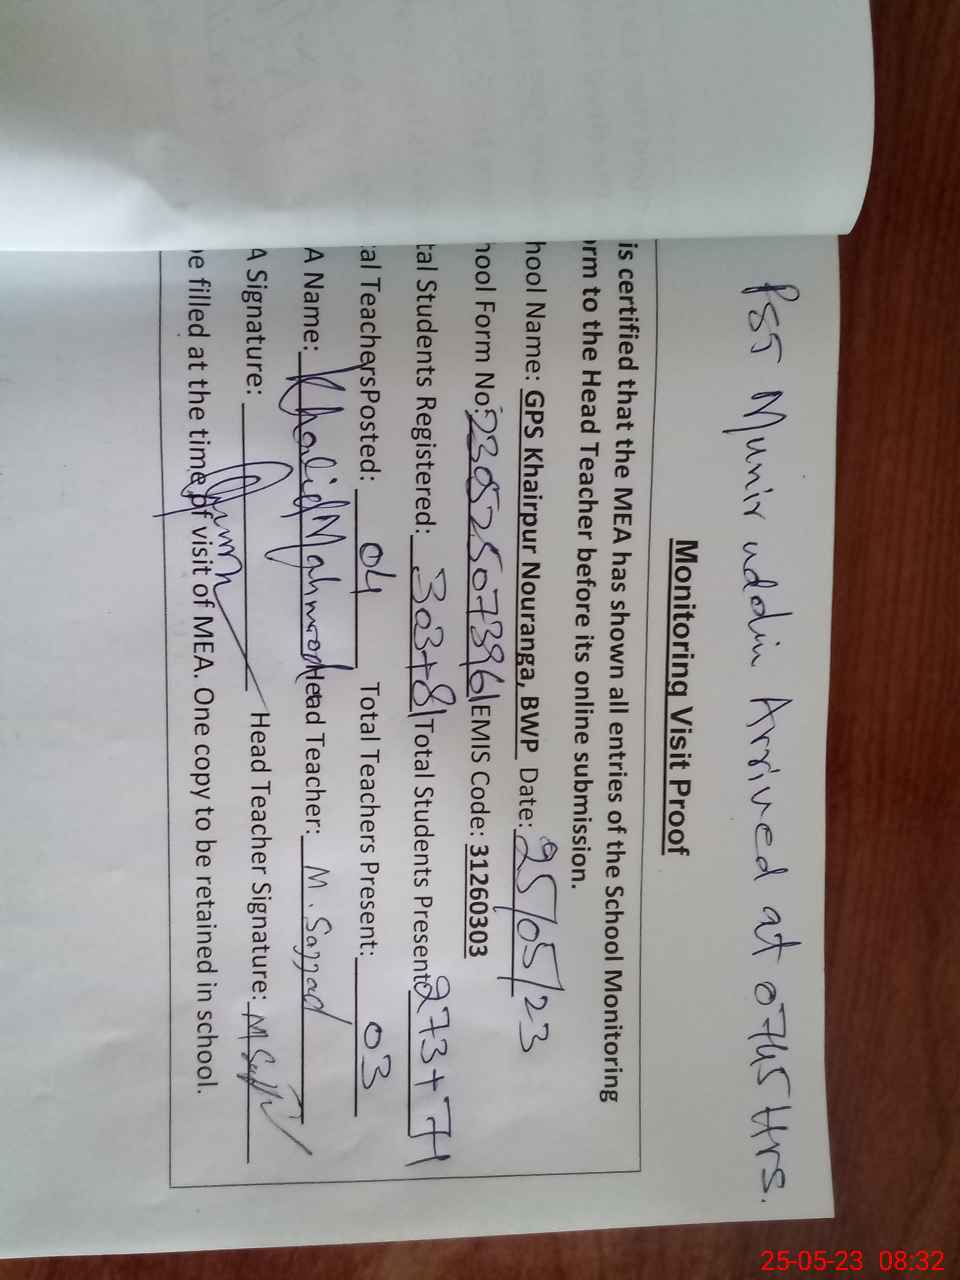 PST Munir uddin Arrived at 0745 Hrs.
Monitoring Visit Proof
is certified that the MEA has shown all entries of the School Monitoring
rm to the Head Teacher before its online submission.
hool Name: GPS Khairpur Nouranga, BWP Date: 25/05/23
hool Form No: 23052507396 EMIS Code: 31260303
tal Students Registered: 303+81 Total Students Present: 273+71
al TeachersPosted: 04 Total Teachers Present: 03
A Name: Khalid Mahmood Head Teacher: M. Sajjad
A Signature: Head Teacher Signature:
e filled at the time of visit of MEA. One copy to be retained in school.
25-05-23 08:32